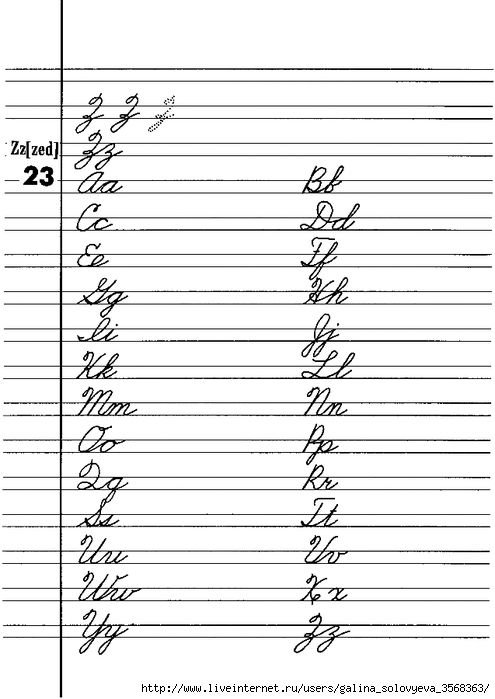 Z Z z
Zz[zed] Zz
23 Aa Bb
Cc Dd
Ee Ff
Gg Hh
Ii Jj
Kk Ll
Mm Nn
Oo Pp
Qq Rr
Ss Tt
Uu Vv
Ww Xx
Yy Zz
http://www.liveinternet.ru/users/galina_solovyeva_3568363/